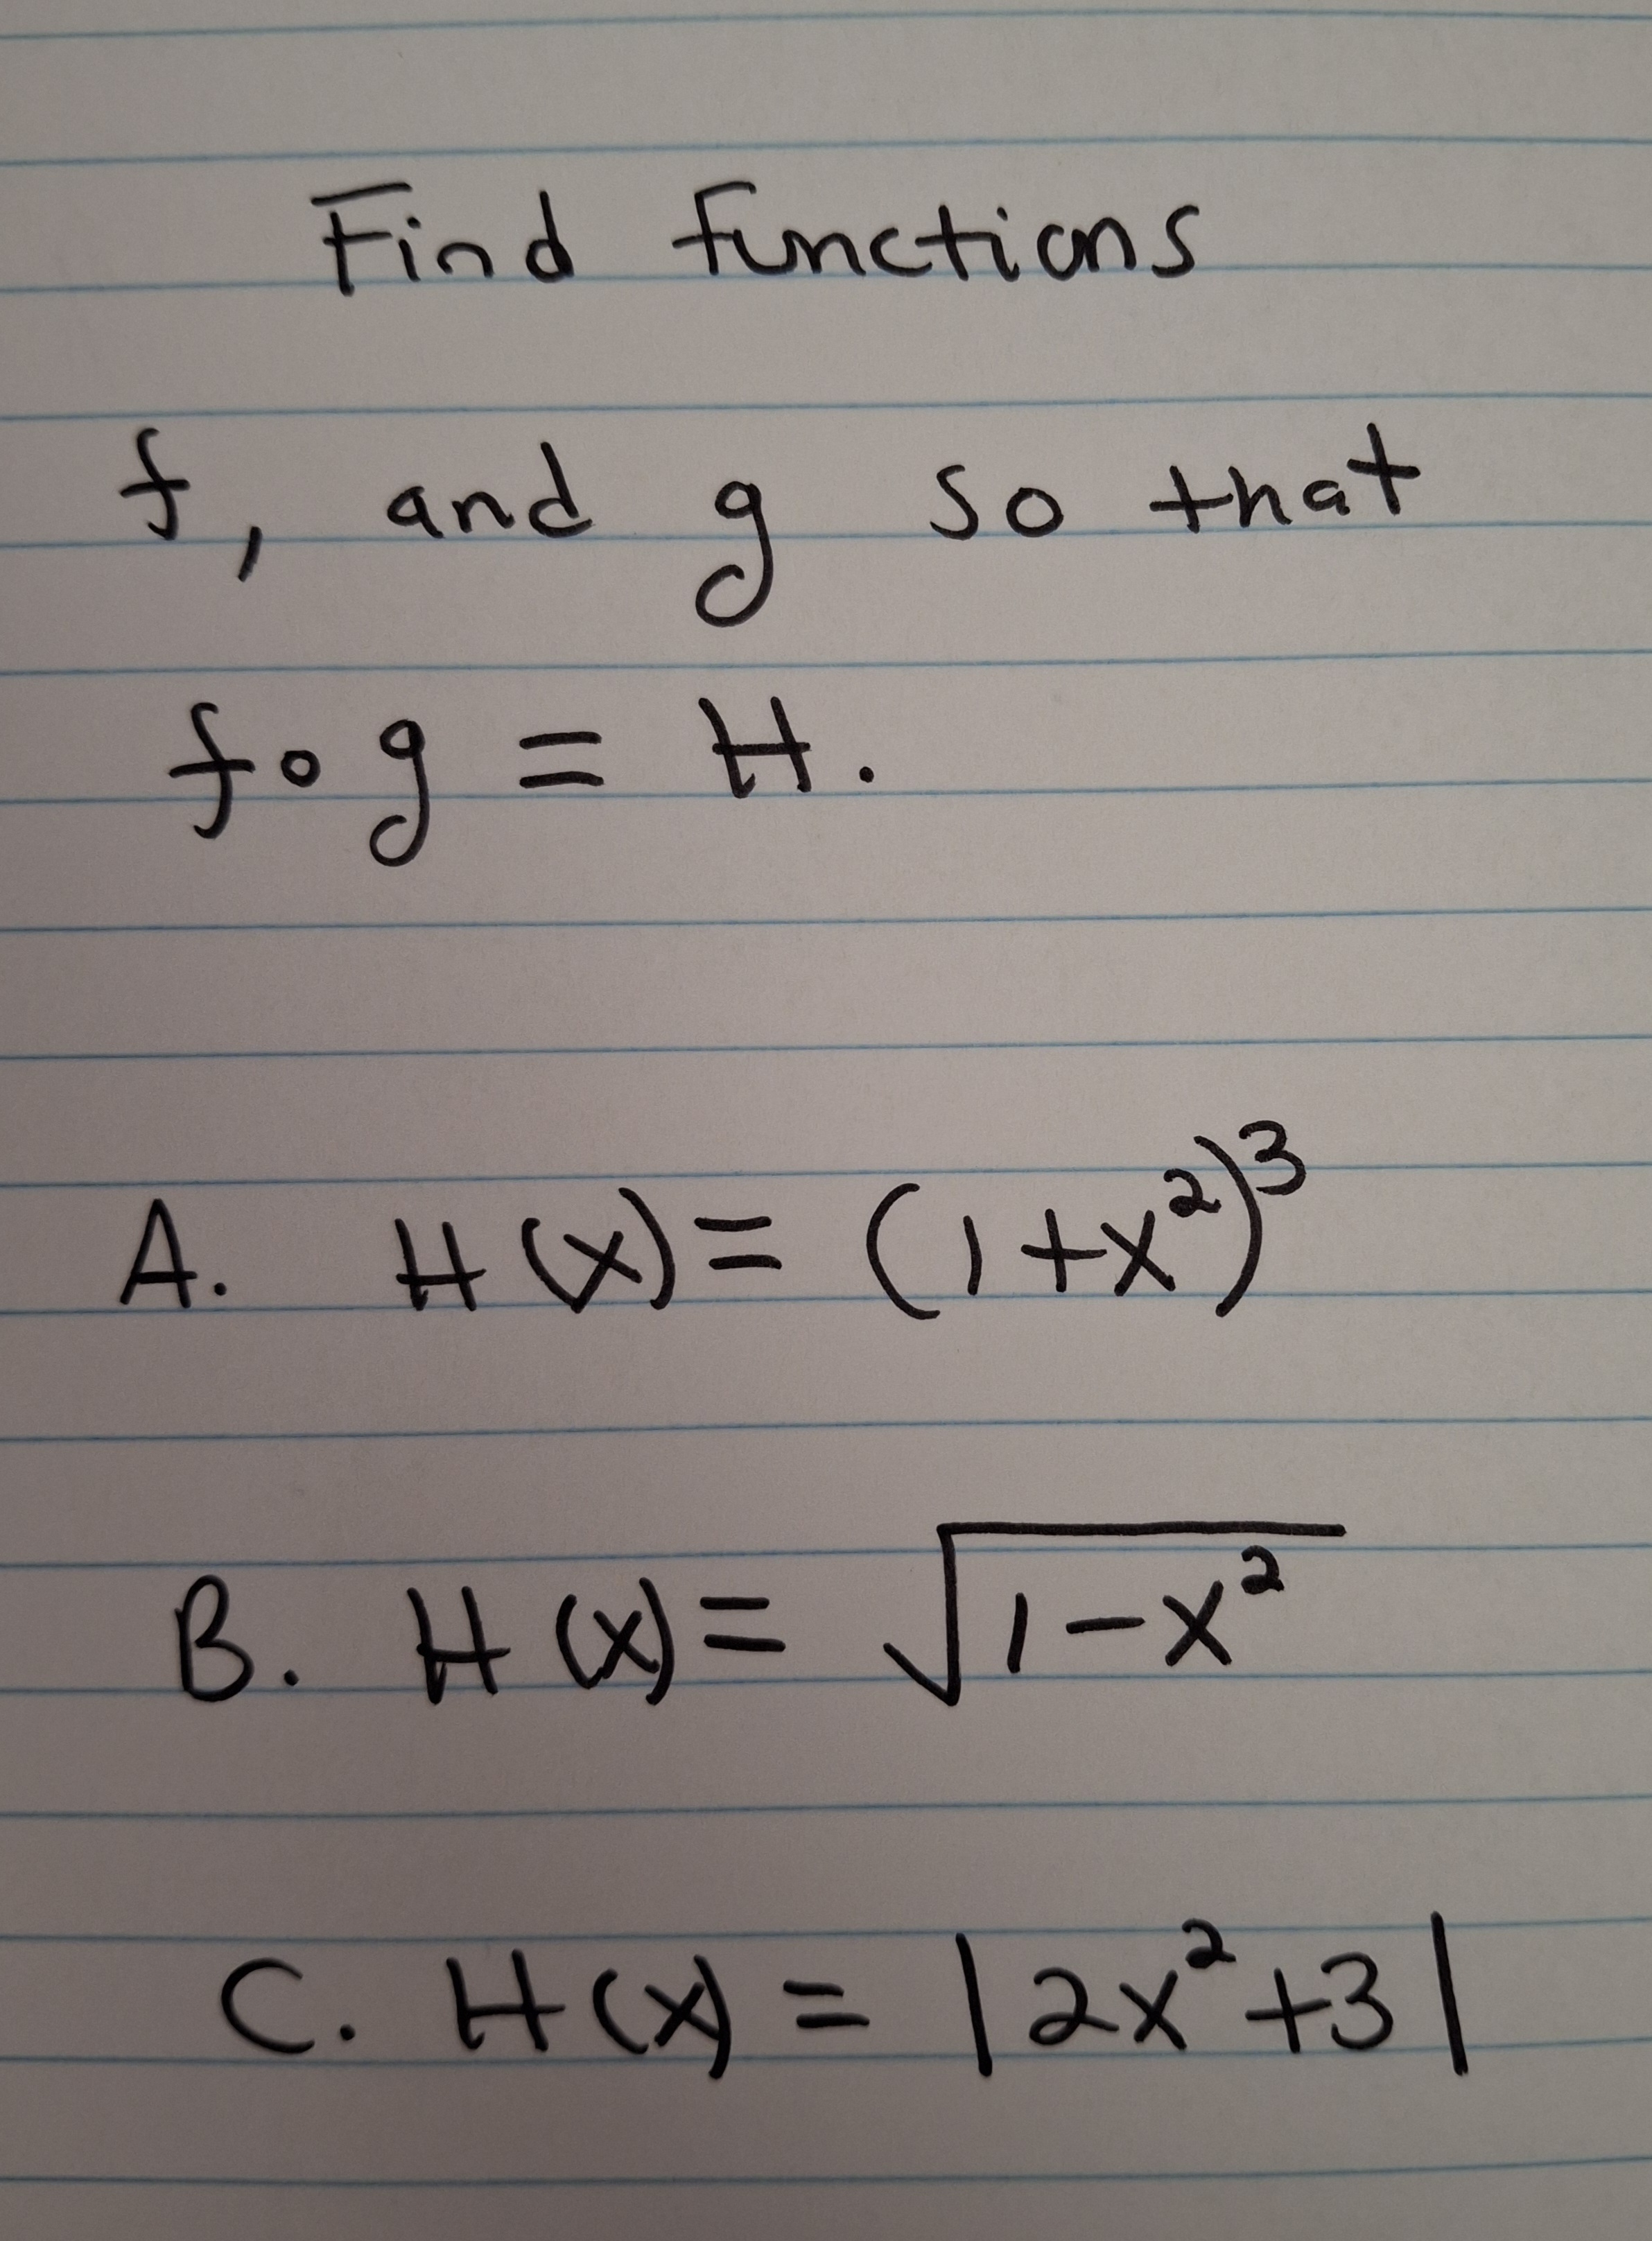 Find functions
f, and g so that
f∘g = H.
A. H(x) = (1+x²)³
B. H(x) = √(1-x²)
C. H(x) = |2x²+3|